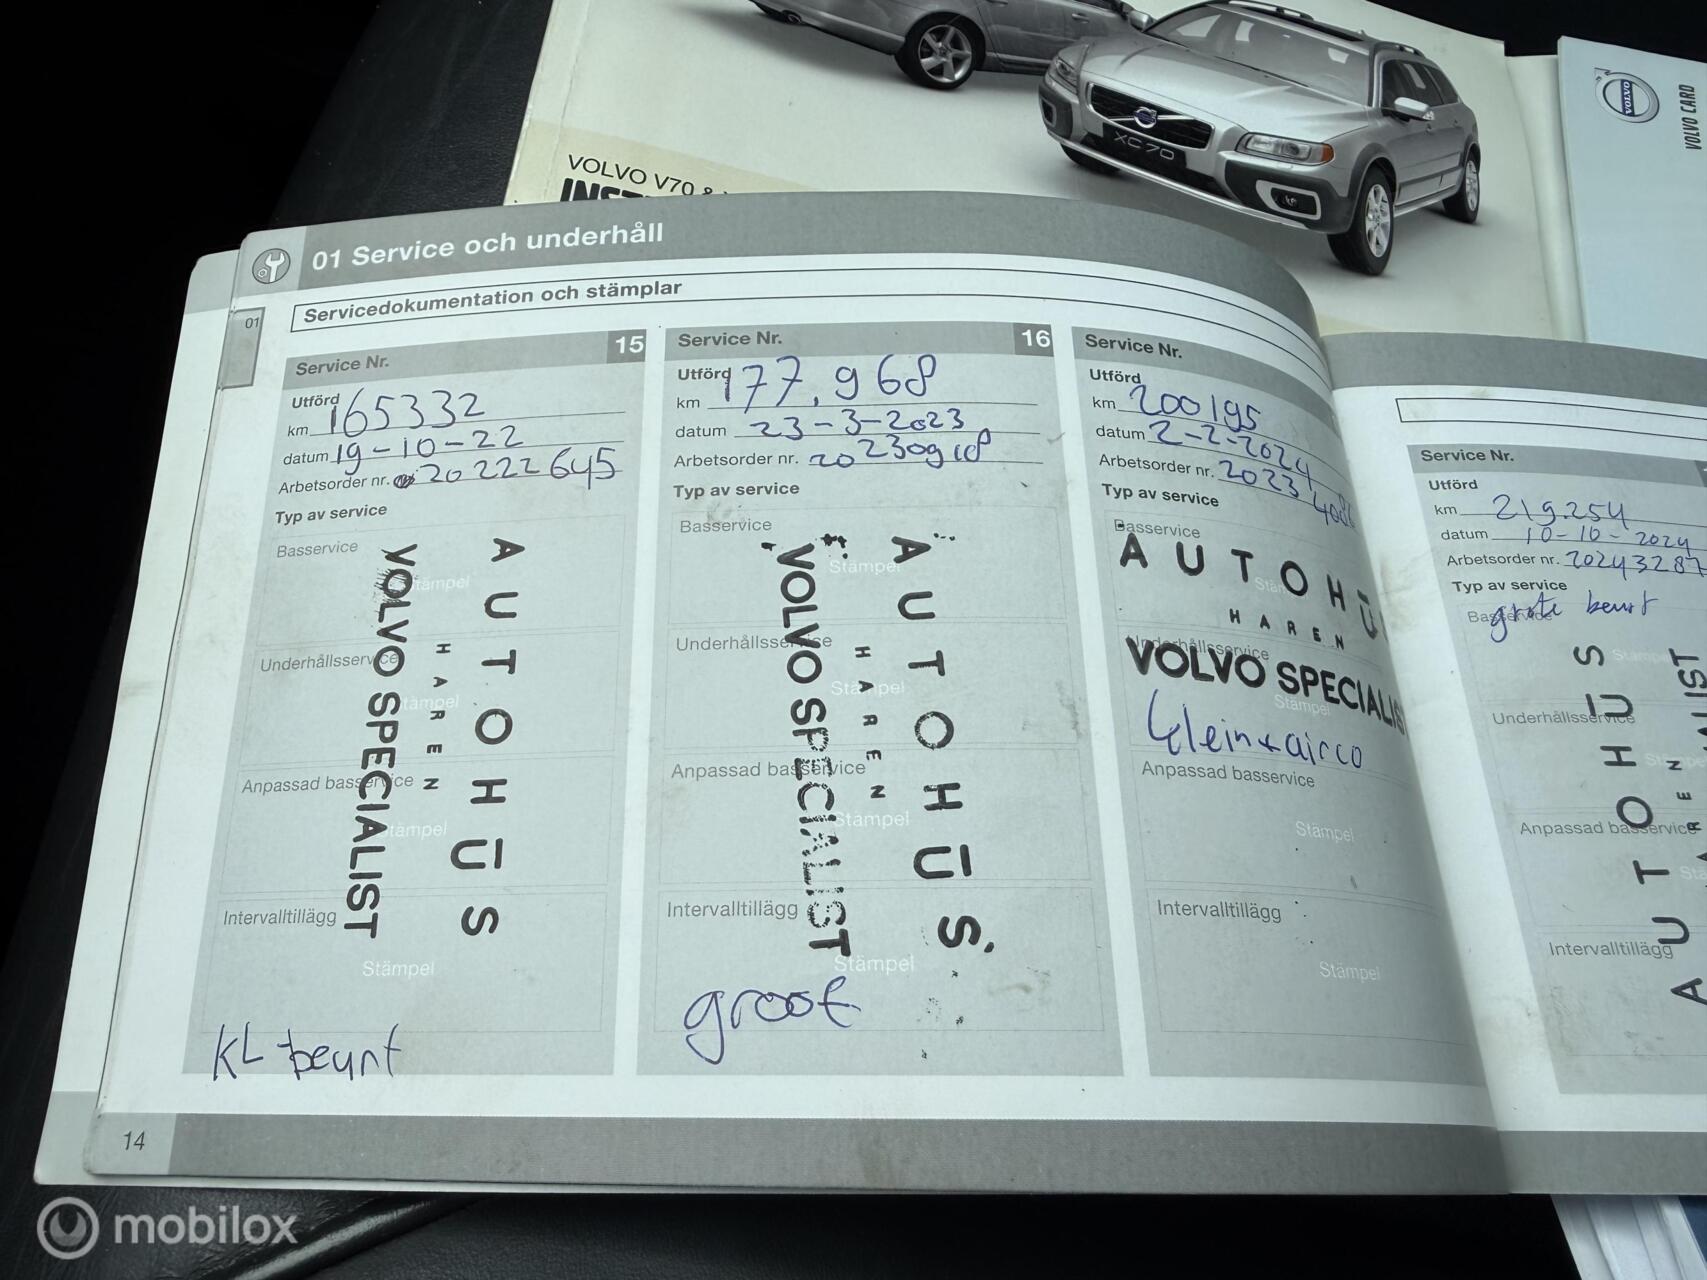 VOLVO V70 &
XC70
VOLVO
VOLVO CARD
01 Service och underhåll
Servicedokumentation och stämplar
01
Service Nr. 15
Utförd
km 165332
datum 19-10-22
Arbetsorder nr. 20222645
Typ av service
Basservice
Stämpel
Underhållsservice
Stämpel
Anpassad basservice
Stämpel
Intervalltillägg
Stämpel
AUTOHŪS
HAREN
VOLVO SPECIALIST
KL beurt
Service Nr. 16
Utförd
km 177.968
datum 23-3-2023
Arbetsorder nr.
Typ av service
Basservice
Stämpel
Underhållsservice
Stämpel
Anpassad basservice
Stämpel
Intervalltillägg
Stämpel
AUTOHŪS
HAREN
VOLVO SPECIALIST
groot
Service Nr.
Utförd
km 200195
datum 2-2-2024
Arbetsorder nr.
Typ av service
Basservice
AUTOHŪ
HAREN
Underhållsservice
VOLVO SPECIALIS
Stämpel
klein+airco
Anpassad basservice
Stämpel
Intervalltillägg
Stämpel
Service Nr.
Utförd
km 219.254
datum 10-10-2024
Arbetsorder nr. 20243287
Typ av service
Basservice
grote beurt
Underhållsservice
Anpassad basservice
Intervalltillägg
AUTOHŪS
14
mobilox